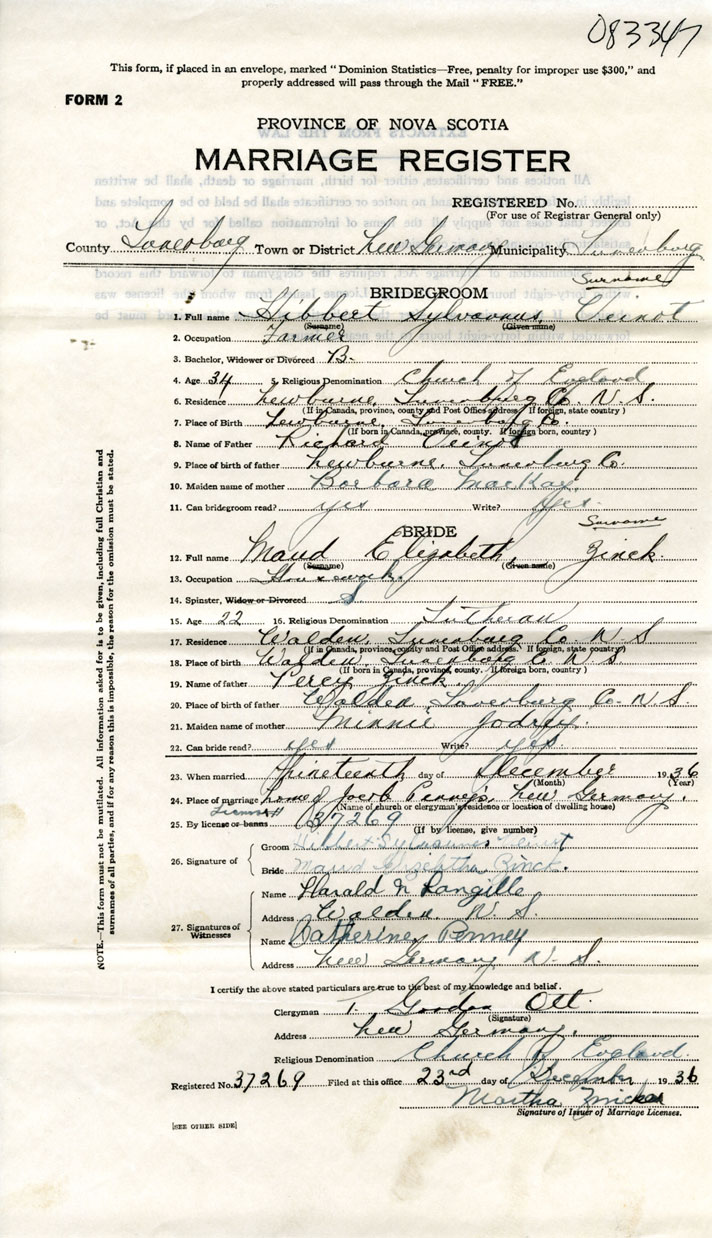 083347
This form, if placed in an envelope, marked "Dominion Statistics—Free, penalty for improper use $300," and
properly addressed will pass through the Mail "FREE."
FORM 2
PROVINCE OF NOVA SCOTIA
MARRIAGE REGISTER
REGISTERED No.
(For use of Registrar General only)
County Lunenburg Town or District New Germany Municipality Lunenburg
Surname
BRIDEGROOM
1. Full name Hibbert Sylvanus, Veinot
(Surname) (Given name)
2. Occupation Farmer
3. Bachelor, Widower or Divorced B.
4. Age 34 5. Religious Denomination Church of England
6. Residence Newburne, Lunenburg Co. N. S.
(If in Canada, province, county and Post Office address. If foreign, state country)
7. Place of Birth Newburne, Lunenburg Co.
(If born in Canada, province, county. If foreign born, country)
8. Name of Father Richard Veinot
9. Place of birth of father Newburne, Lunenburg Co.
10. Maiden name of mother Barbara MacKay.
11. Can bridegroom read? yes Write? yes.
Surname
BRIDE
12. Full name Maud Elizabeth, Zinck.
(Surname) (Given name)
13. Occupation Housework.
14. Spinster, Widow or Divorced S
15. Age 22 16. Religious Denomination Lutheran
17. Residence Walden, Lunenburg Co. N S
(If in Canada, province, county and Post Office address. If foreign, state country)
18. Place of birth Walden, Lunenburg Co N S
(If born in Canada, province, county. If foreign born, country)
19. Name of father Percy Zinck
20. Place of birth of father Walden, Lunenburg Co. N. S.
21. Maiden name of mother Minnie Jodrey
22. Can bride read? yes Write? yes.
23. When married Nineteenth day of December 1936
(Month) (Year)
24. Place of marriage home of Jacob Penney's, New Germany.
(Name of church or clergyman's residence or location of dwelling house)
25. By license or banns 37269
(If by license, give number)
26. Signature of
Groom Hibbert Sylvanus Veinot
Bride Maud Zinck.
27. Signatures of Witnesses
Name Harald Langille
Address Walden. N. S.
Name Catherine Penney
Address New Germany N. S.
I certify the above stated particulars are true to the best of my knowledge and belief.
Clergyman Gordon Ott.
(Signature)
Address New Germany.
Religious Denomination Church of England.
Registered No. 37269 Filed at this office 23rd day of December 1936
Martha
Signature of Issuer of Marriage Licenses.
[SEE OTHER SIDE]
NOTE.—This form must not be mutilated. All information asked for is to be given, including full Christian and
surnames of all parties, and if for any reason this is impossible, the reason for the omission must be stated.